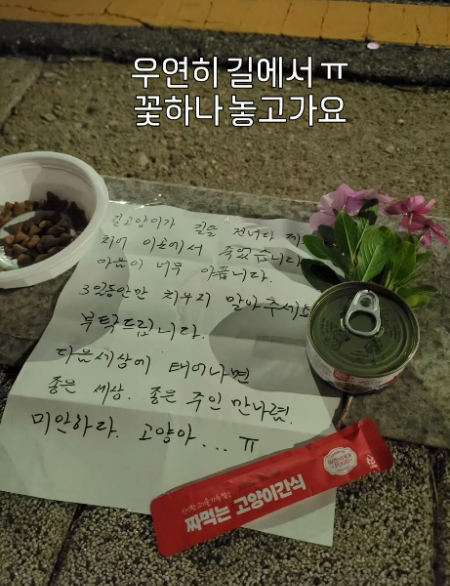 우연히 길에서 ㅠ
꽃하나 놓고가요
길고양이가 길을 건너다
이곳에서 죽었습니다
마음이 너무 아픕니다.
3일동안만 치우지 말아주세요
부탁드립니다.
다음세상에 태어나면
좋은 세상. 좋은 주인 만나렴.
미안하다. 고양아... ㅠ
짜먹는 고양이간식